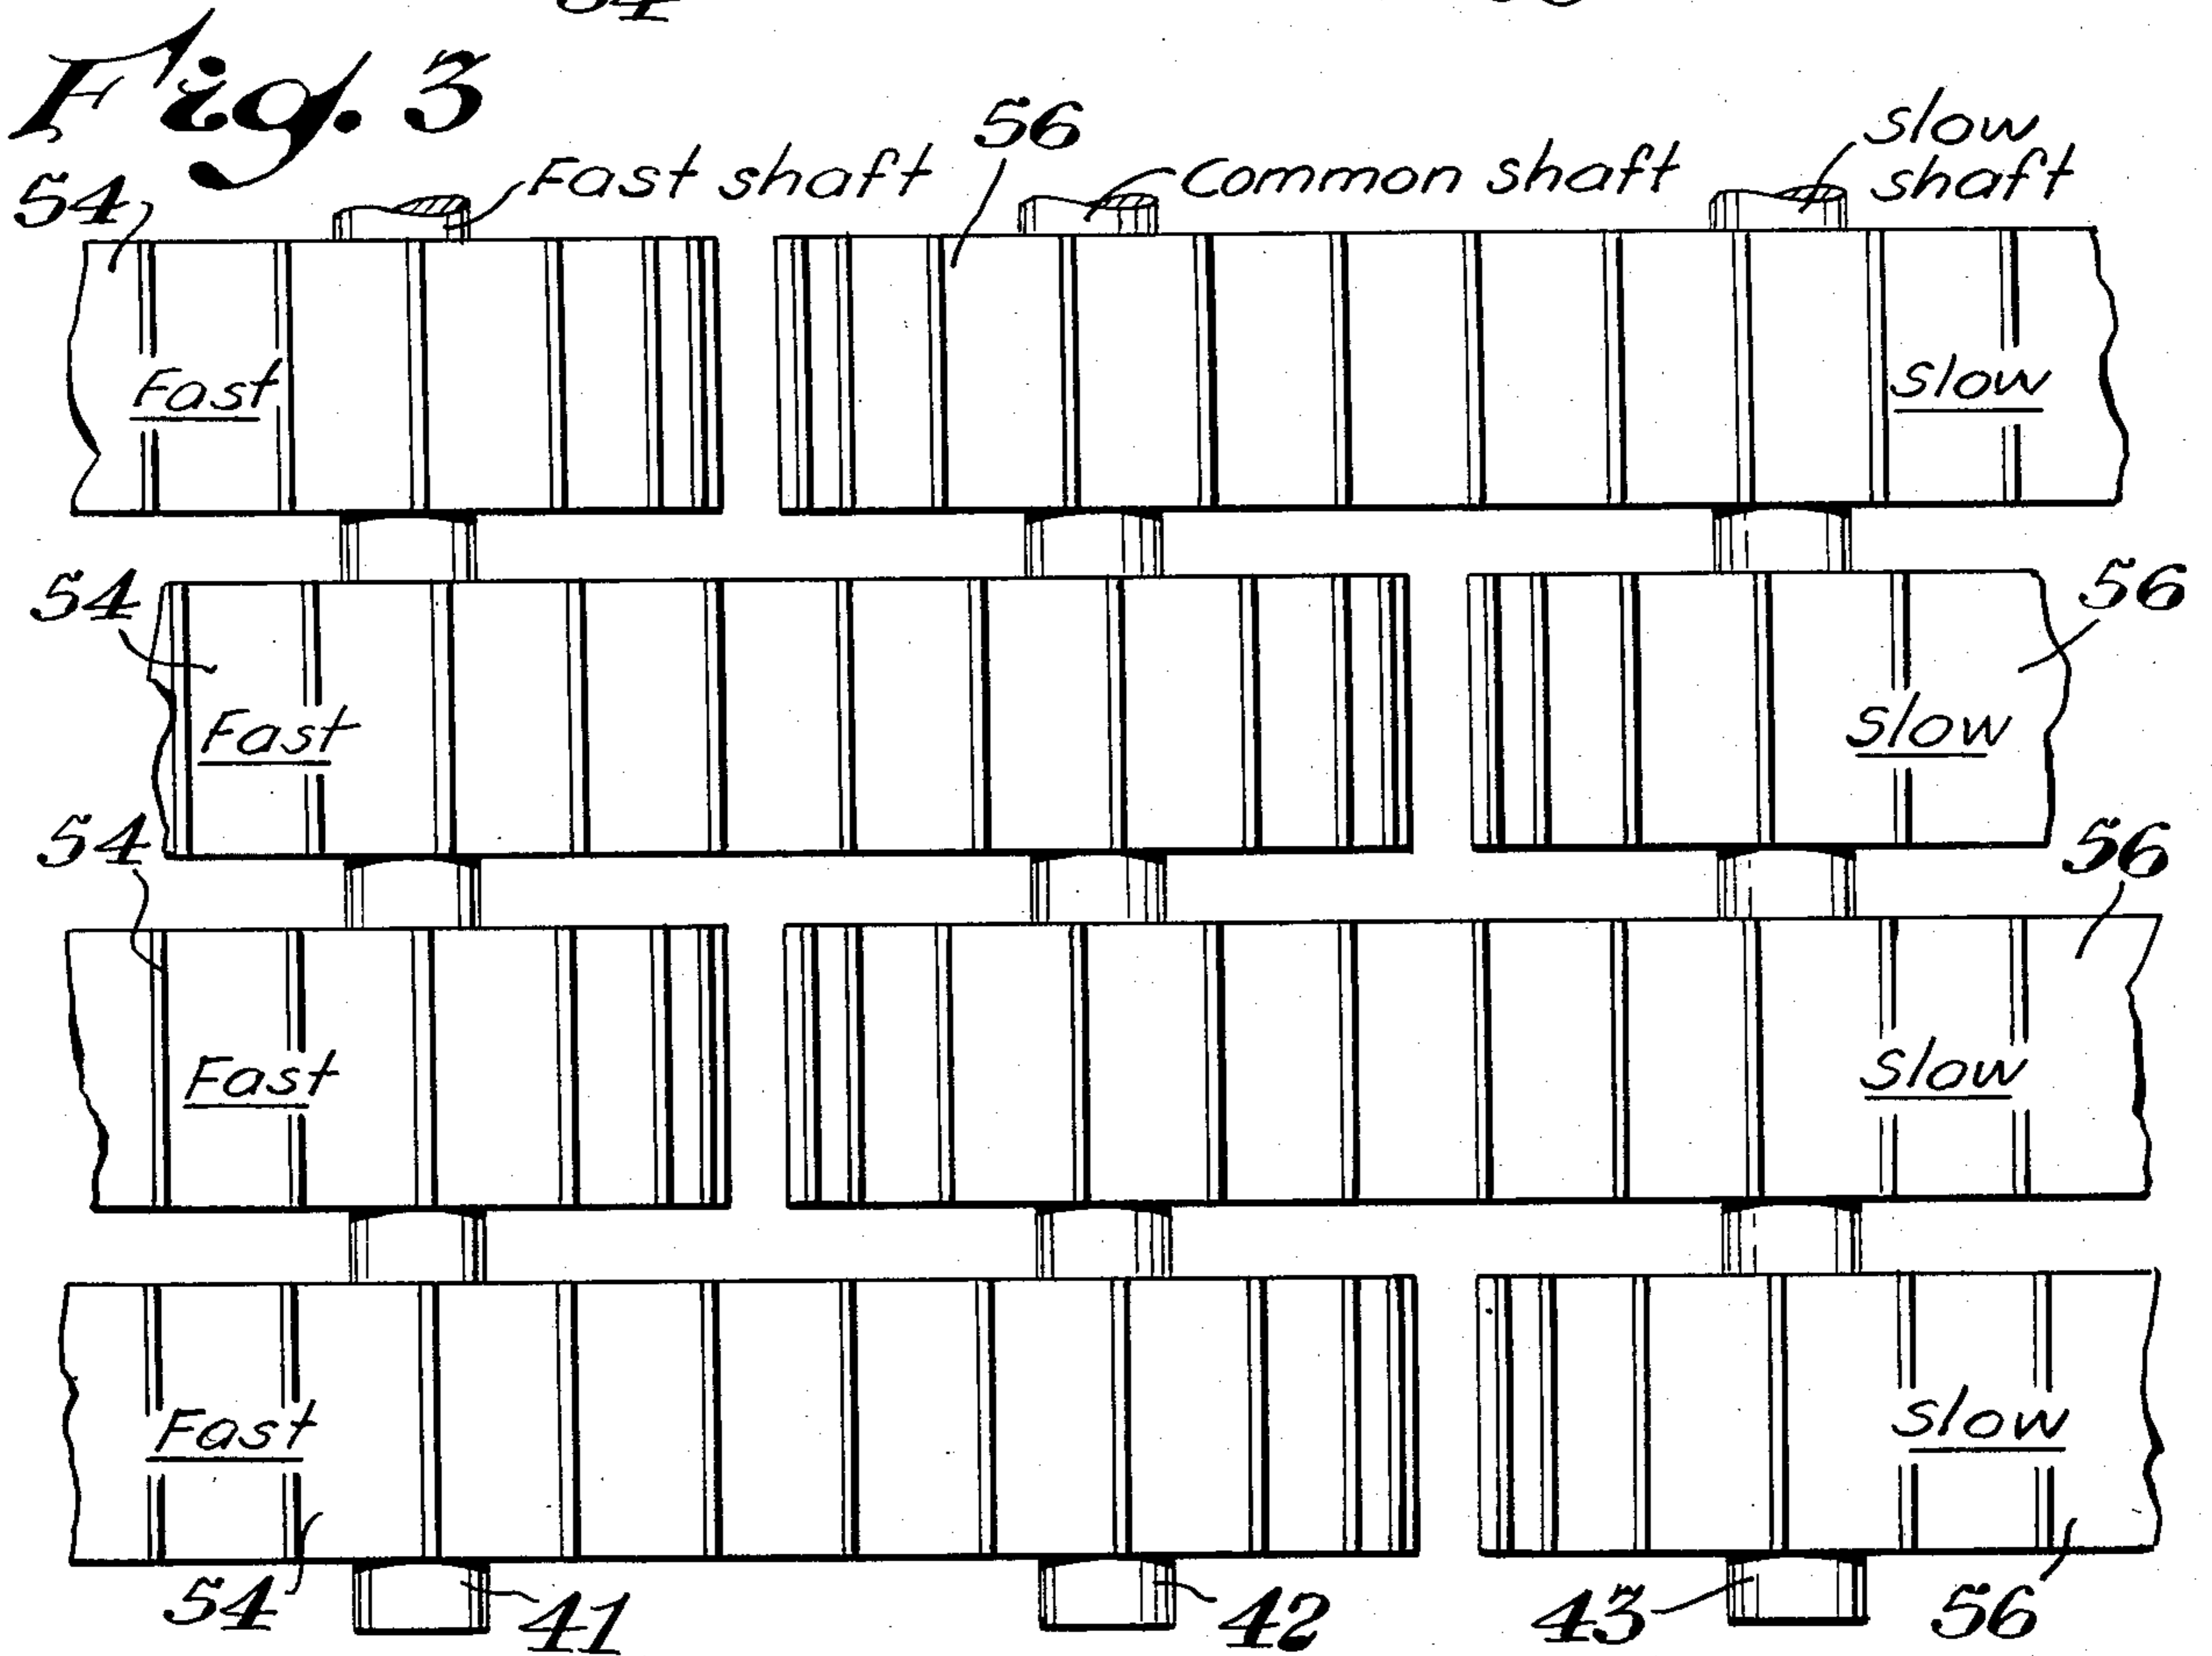 Fig. 3
54
Fast shaft
56
Common shaft
slow
shaft
Fast
slow
54
56
Fast
slow
54
56
Fast
slow
Fast
slow
54
41
42
43
56